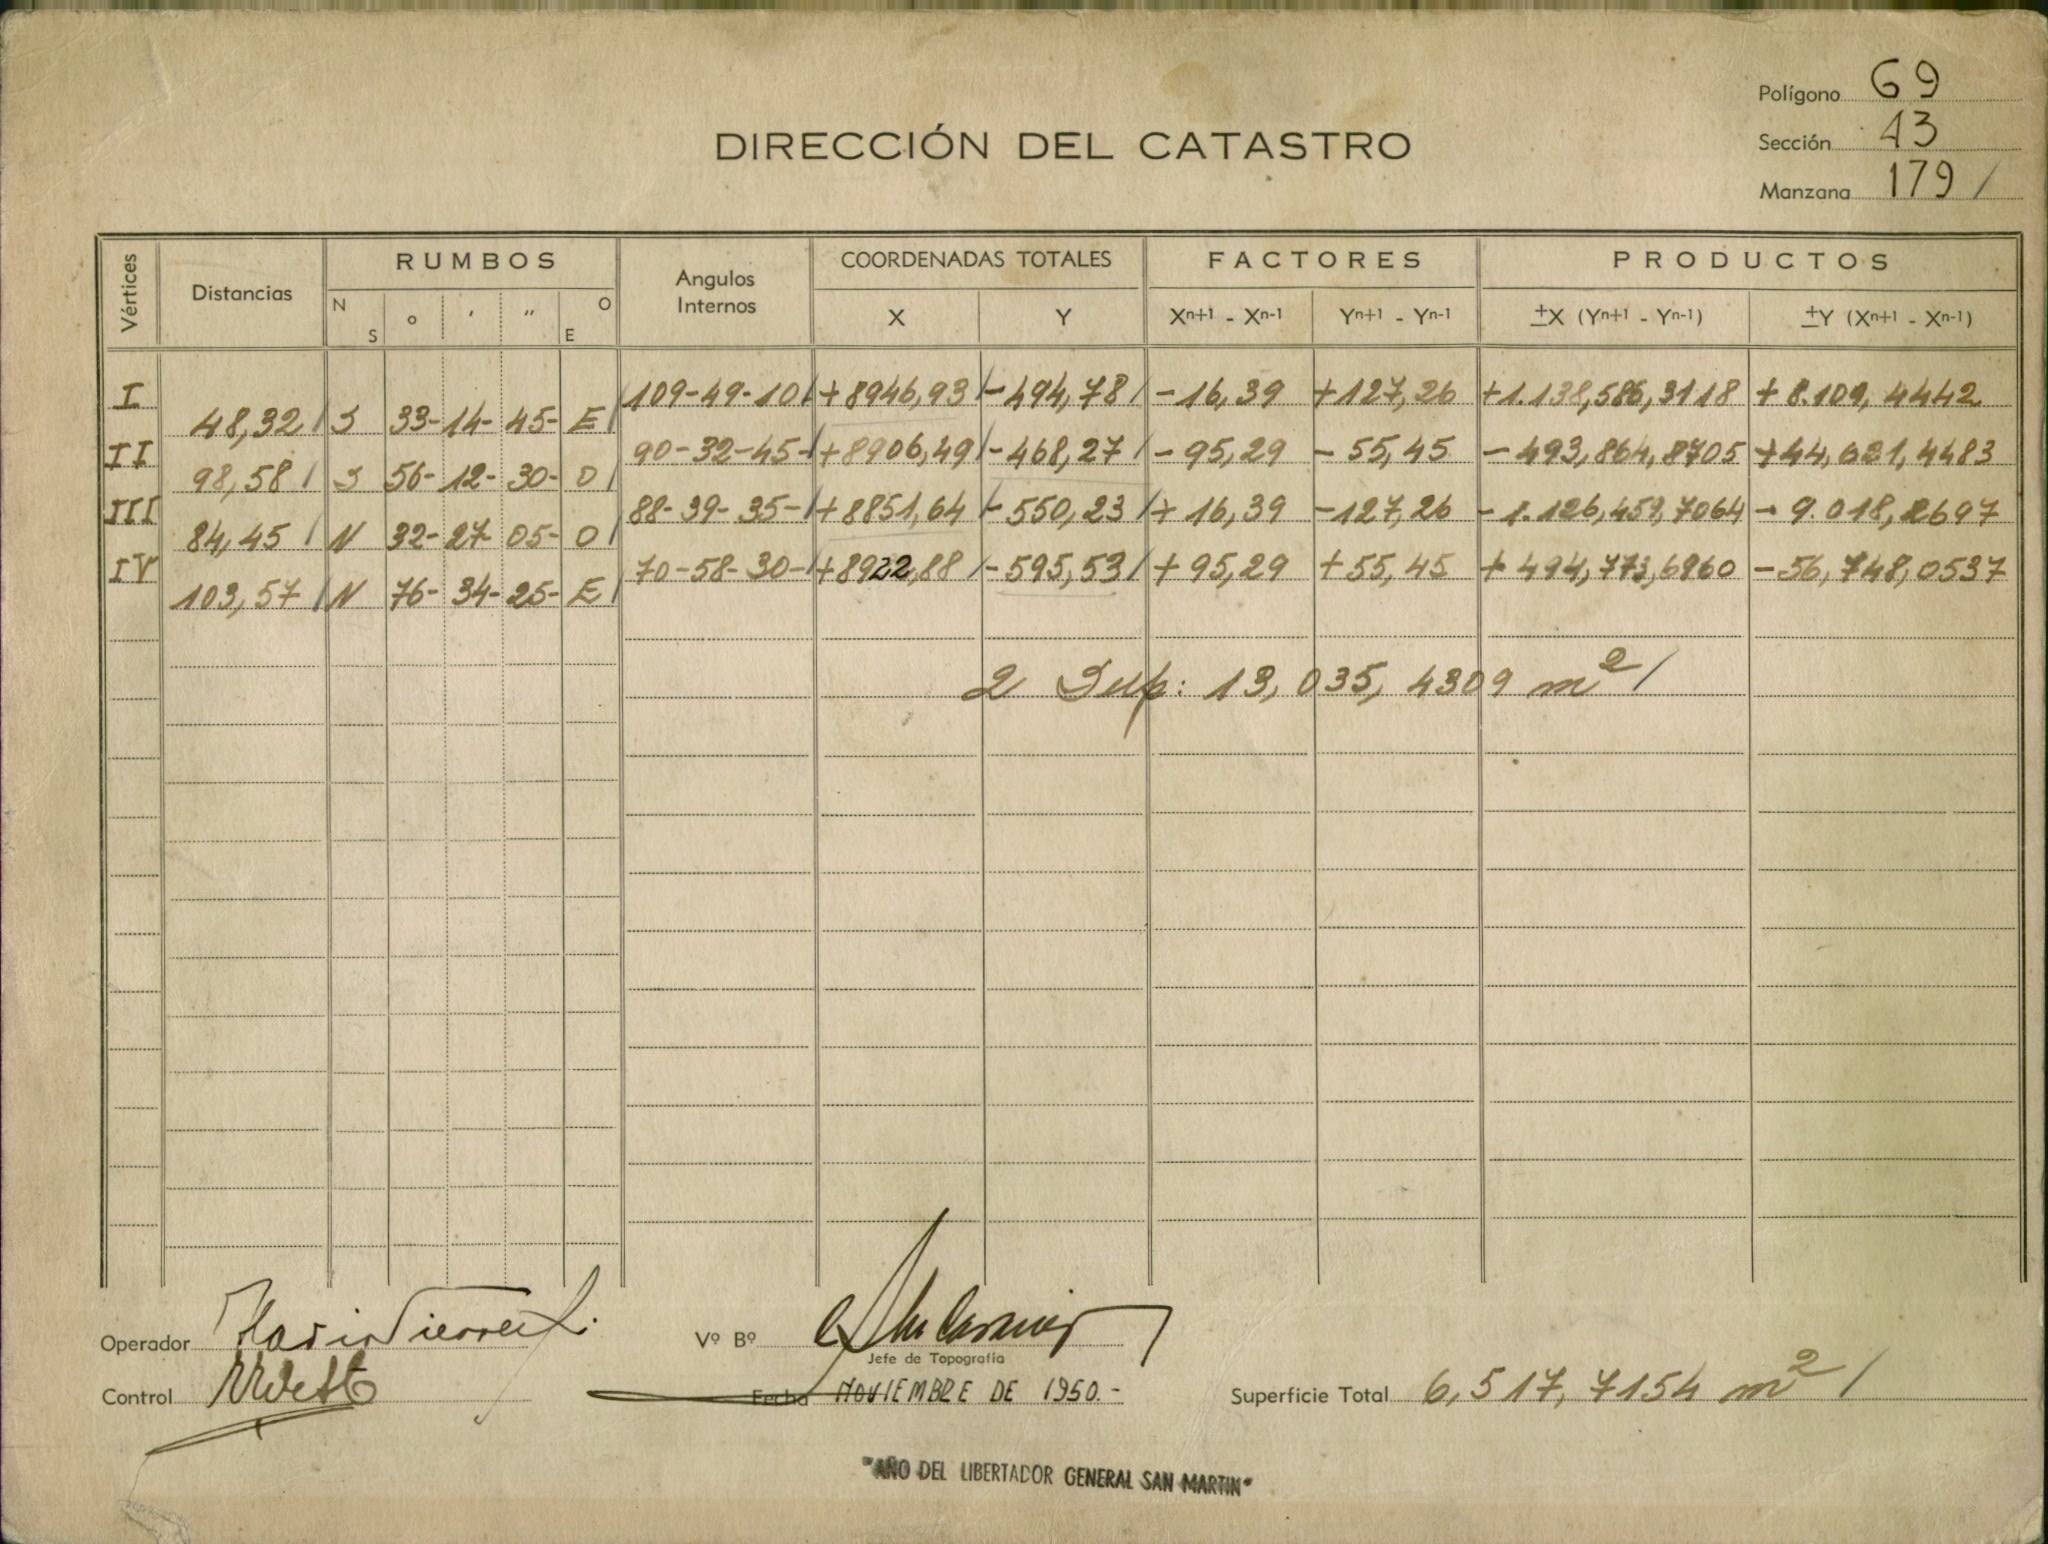 Polígono 69
DIRECCIÓN DEL CATASTRO
Sección 43
Manzana 179 /
Vértices Distancias RUMBOS Angulos Internos COORDENADAS TOTALES FACTORES PRODUCTOS
N S ° ' " O E X Y Xn+1 - Xn-1 Yn+1 - Yn-1 ±X (Yn+1 - Yn-1) ±Y (Xn+1 - Xn-1)
I 109-49-10/ +8946,93/ -494,78/ -16,39 +127,26 +1.138,586,3118 +8.109,4442
48,32/ S 33- 14- 45- E/
II 90-32-45-/ +8906,49/ -468,27/ -95,29 -55,45 -493,864,8705 +44,621,4483
98,58/ S 56- 12- 30- O/
III 88-39-35-/ +8851,64/ -550,23/ +16,39 -127,26 -1.126,459,7064 -9.018,2697
84,45/ N 32- 27- 05- O/
IV 70-58-30-/ +8922,88/ -595,53/ +95,29 +55,45 +494,773,6960 -56,748,0537
103,57/ N 76- 34- 25- E/
2 Sup: 13,035,4309 m2/
Operador
Vº Bº
Jefe de Topografía
Control
Fecha NOVIEMBRE DE 1950.-
Superficie Total 6,517,7154 m2/
"AÑO DEL LIBERTADOR GENERAL SAN MARTIN"